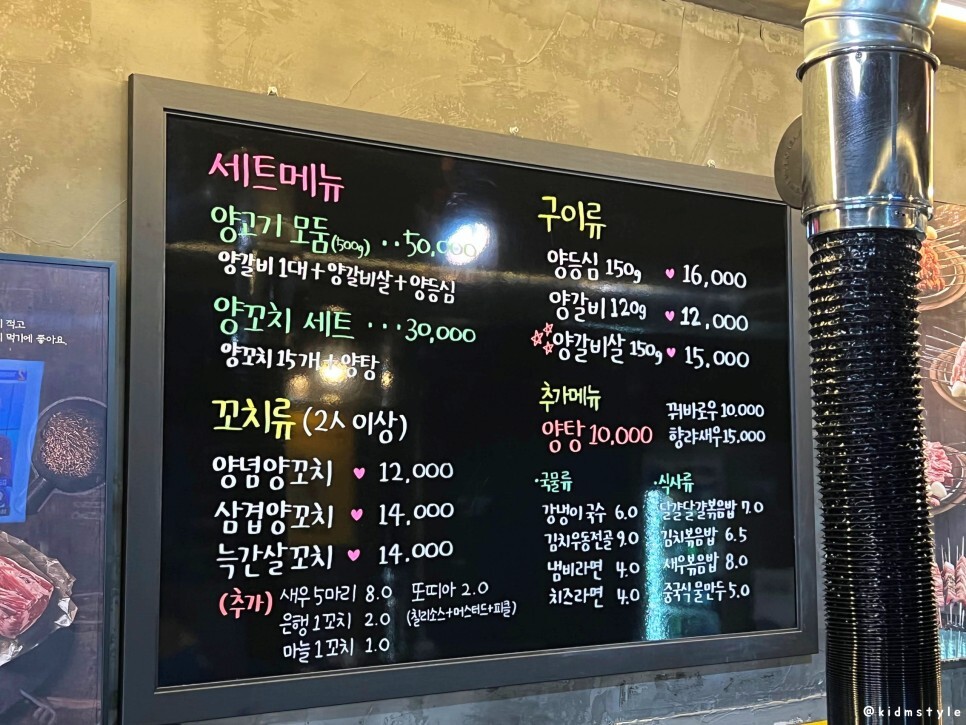 세트메뉴
양고기 모둠(500g) ··50,000
양갈비 1대+양갈비살+양등심
양꼬치 세트 ···30,000
양꼬치 15개+양탕
꼬치류 (2人 이상)
양념양꼬치 ♥ 12,000
삼겹양꼬치 ♥ 14.000
늑간살꼬치 ♥ 14.000
(추가) 새우 5마리 8.0 또띠아 2.0
은행 1꼬치 2.0 (칠리소스+머스터드+피클)
마늘 1꼬치 1.0
구이류
양등심 150g ♥ 16,000
양갈비 120g ♥ 12,000
☆☆☆양갈비살 150g ♥ 15,000
추가메뉴
양탕 10,000
꿔바로우 10,000
향라새우 15,000
·국물류
강냉이국수 6.0
김치우동전골 9.0
냄비라면 4.0
치즈라면 4.0
·식사류
달걀달걀볶음밥 7.0
김치볶음밥 6.5
새우볶음밥 8.0
중국식물만두 5.0
적고
먹기에 좋아요.
@kidmstyle